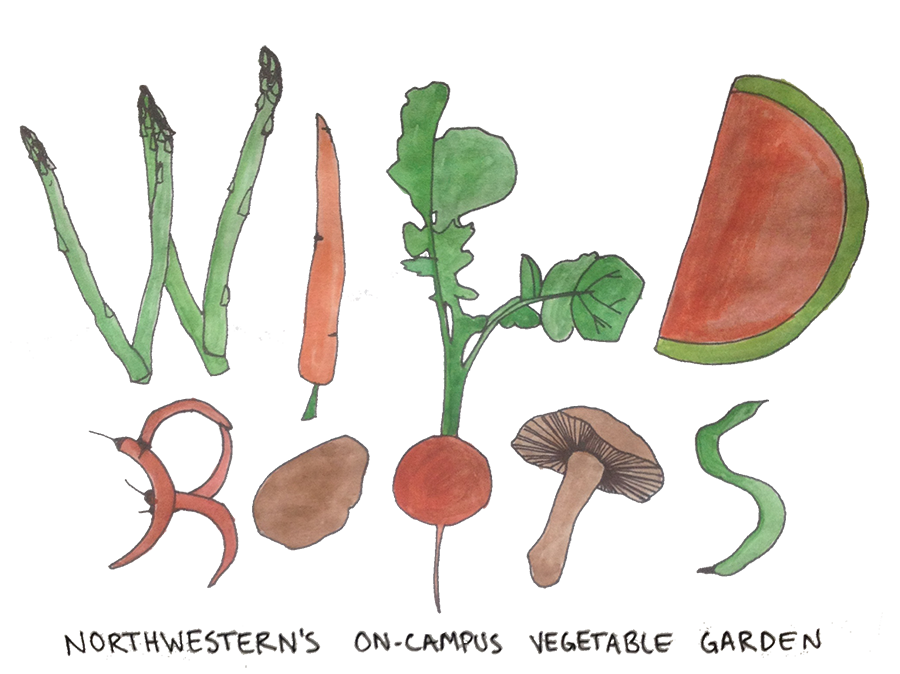 WILD
ROOTS
NORTHWESTERN'S ON-CAMPUS VEGETABLE GARDEN